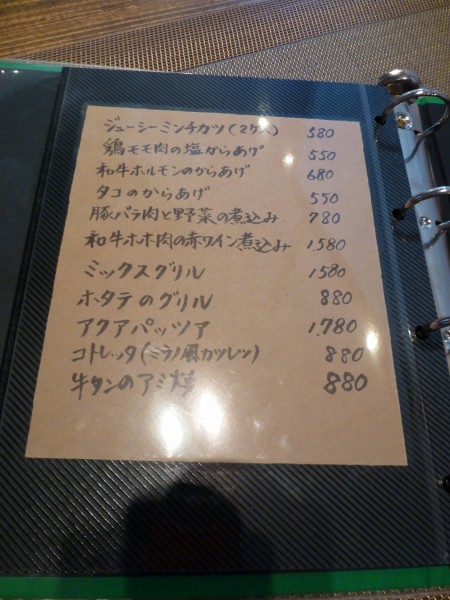 ジューシーミンチカツ(2ケ入) 580
鶏モモ肉の塩からあげ 550
和牛ホルモンのからあげ 680
タコのからあげ 550
豚バラ肉と野菜の煮込み 780
和牛ホホ肉の赤ワイン煮込み 1,580
ミックスグリル 1580
ホタテのグリル 880
アクアパッツァ 1,780
コトレッタ(ミラノ風カツレツ) 880
牛タンのアミ焼 880